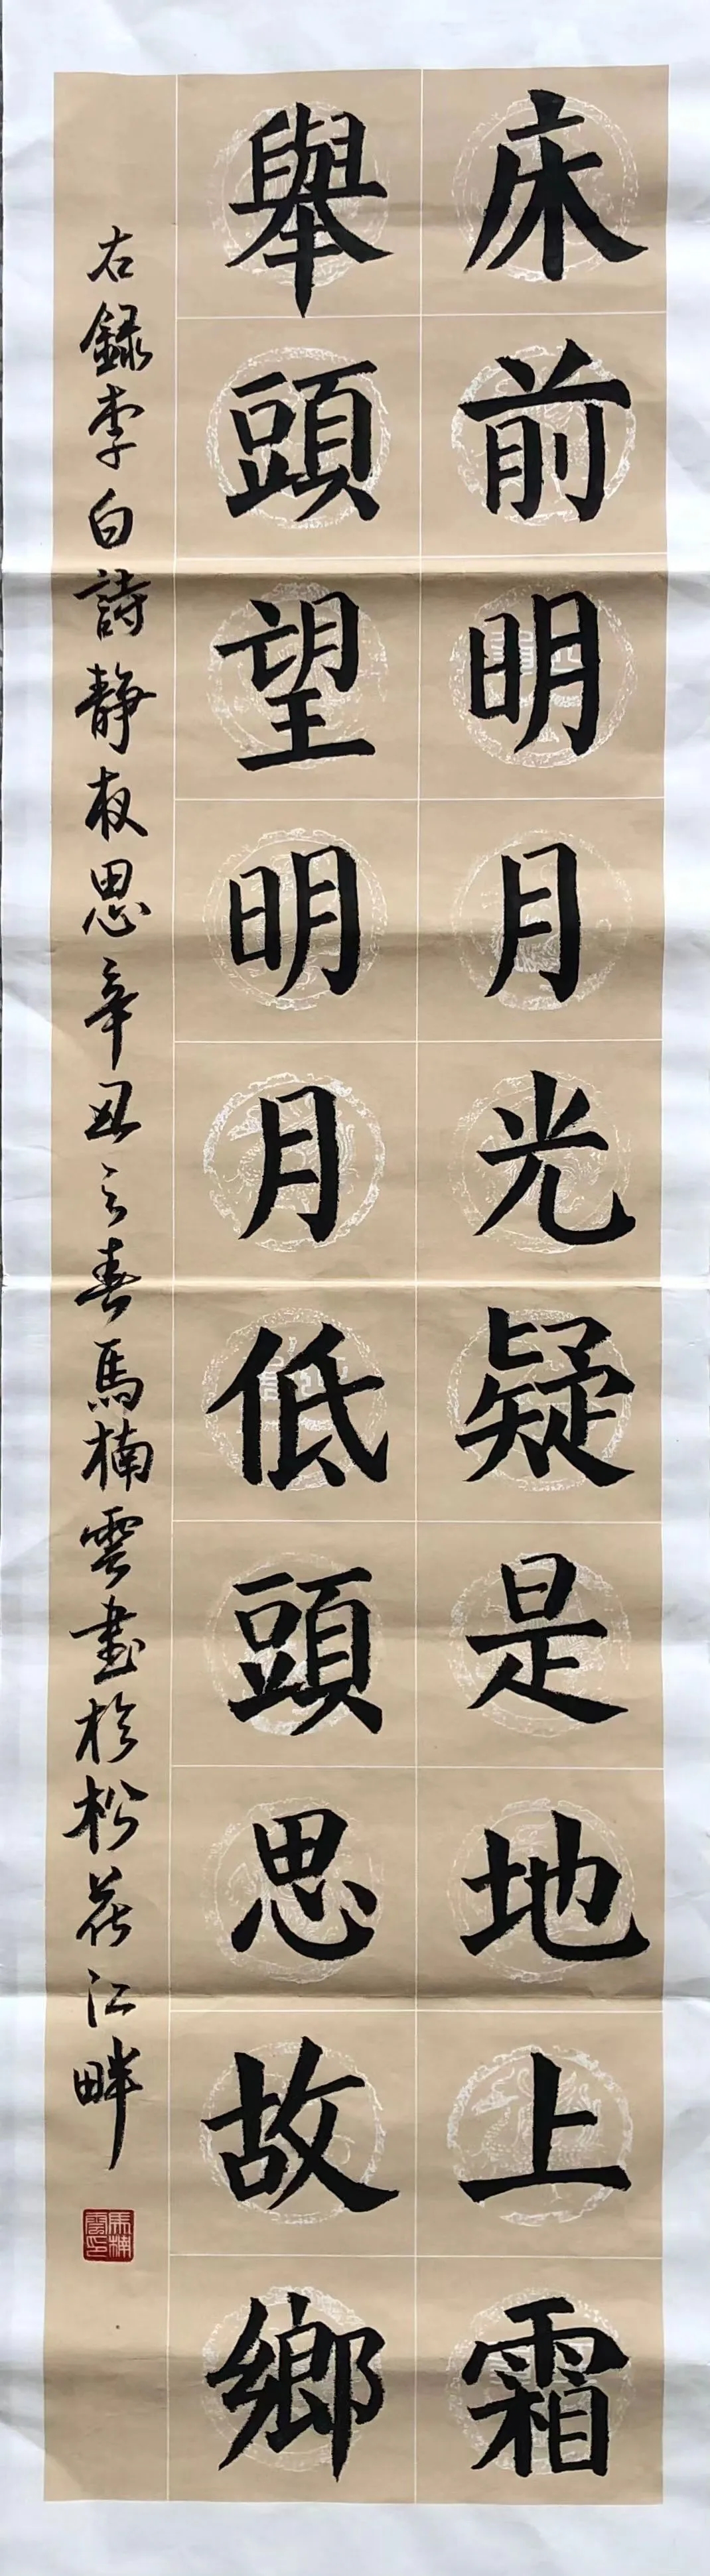 床前明月光疑是地上霜
舉頭望明月低頭思故鄉
右録李白詩靜夜思辛丑之春馬楠雲書於松花江畔
馬楠雲印